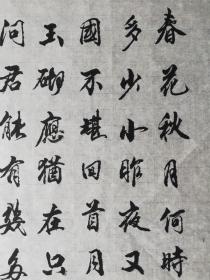 春花秋月何時
多少小昨夜又
國不堪回首月
玉砌應猶在只
問君能有幾多